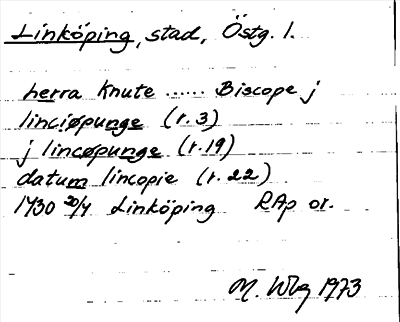 Linköping, stad, Östg. l.
herra Knute ...... Biscope j
linciøpunge (r.3)
j lincøpunge (r.19)
datum lincopie (r.22)
1430 20/4 Linköping RAp or.
M. Wbg 1973